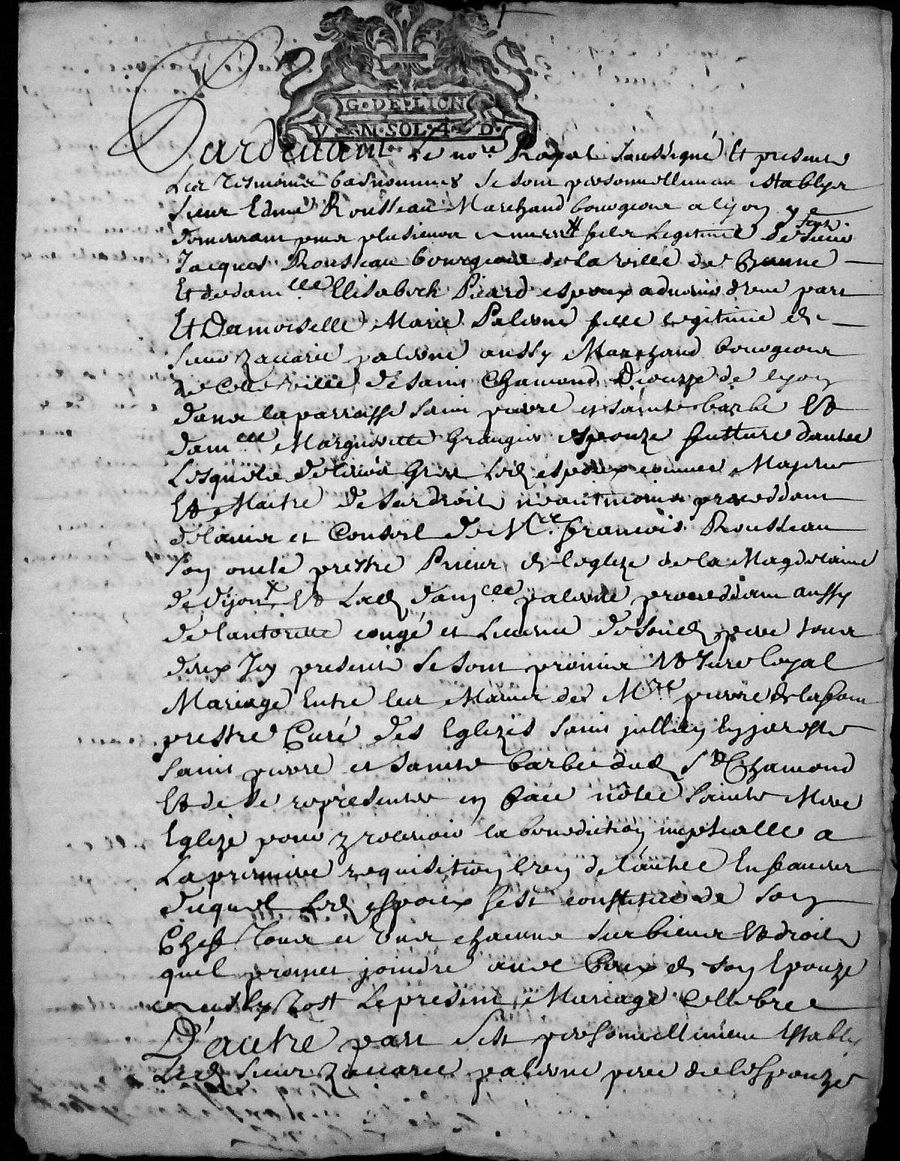 G. DE. LION
VN. SOL. 4. D.
Pardevant Le no.re Royal soussigné Et presents
Les tesmoins basnommes se sont personnellement establys
Sieur Edme Rousseau Marchand bourgeois a lyon y
demeurant puis plusieurs années fils Legitime de feu Sieur
Jacques Rousseau bourgeois de la ville de Beaune
Et de dam.lle Elisabeth Picard espoux advenir d'une part
Et Damoiselle Marie Palerne fille legitime de
sieur Zacarie palerne aussy Marchand bourgeois
de cette ville de saint Chamond Dioceze de lyon
dans la parroisse saint pierre et sainte barbe Et
dam.elle Marguerite Grangier espouze future d'autre
Lesquelles de leurs grez Led. espoux comme Majeur
Et Maitre de ses droits neantmoins proceddant
de l'advis et Conseil de M.re francois Rousseau
son oncle prestre Prieur de leglize de la Magdelaine
de dijon Et Lad. dam.elle palerne proceddant aussy
de l'autorité congé et licence de sond. pere tous
deux Icy presents se sont promis Et Juré loyal
Mariage Entre les Mains de M.re pierre de
prestre Curé des Eglizes saint jullien en jarests
saint pierre et sainte barbe dud. S.t Chamond
Et de se representer en face notre sainte Mere
Eglize pour y recevoir la benediction nuptialle a
La premiere requisition l'un de l'autre En faveur
duquel Led. espoux s'est constitué de son
Chef Tous et Uns chacuns ses biens Et droits
quil promet joindre avec Ceux de son Epouze
aussy tost Le present Mariage Cellebré
D'autre part s'est personnellement Estably
Led. sieur Zacarie palerne pere de lespouze